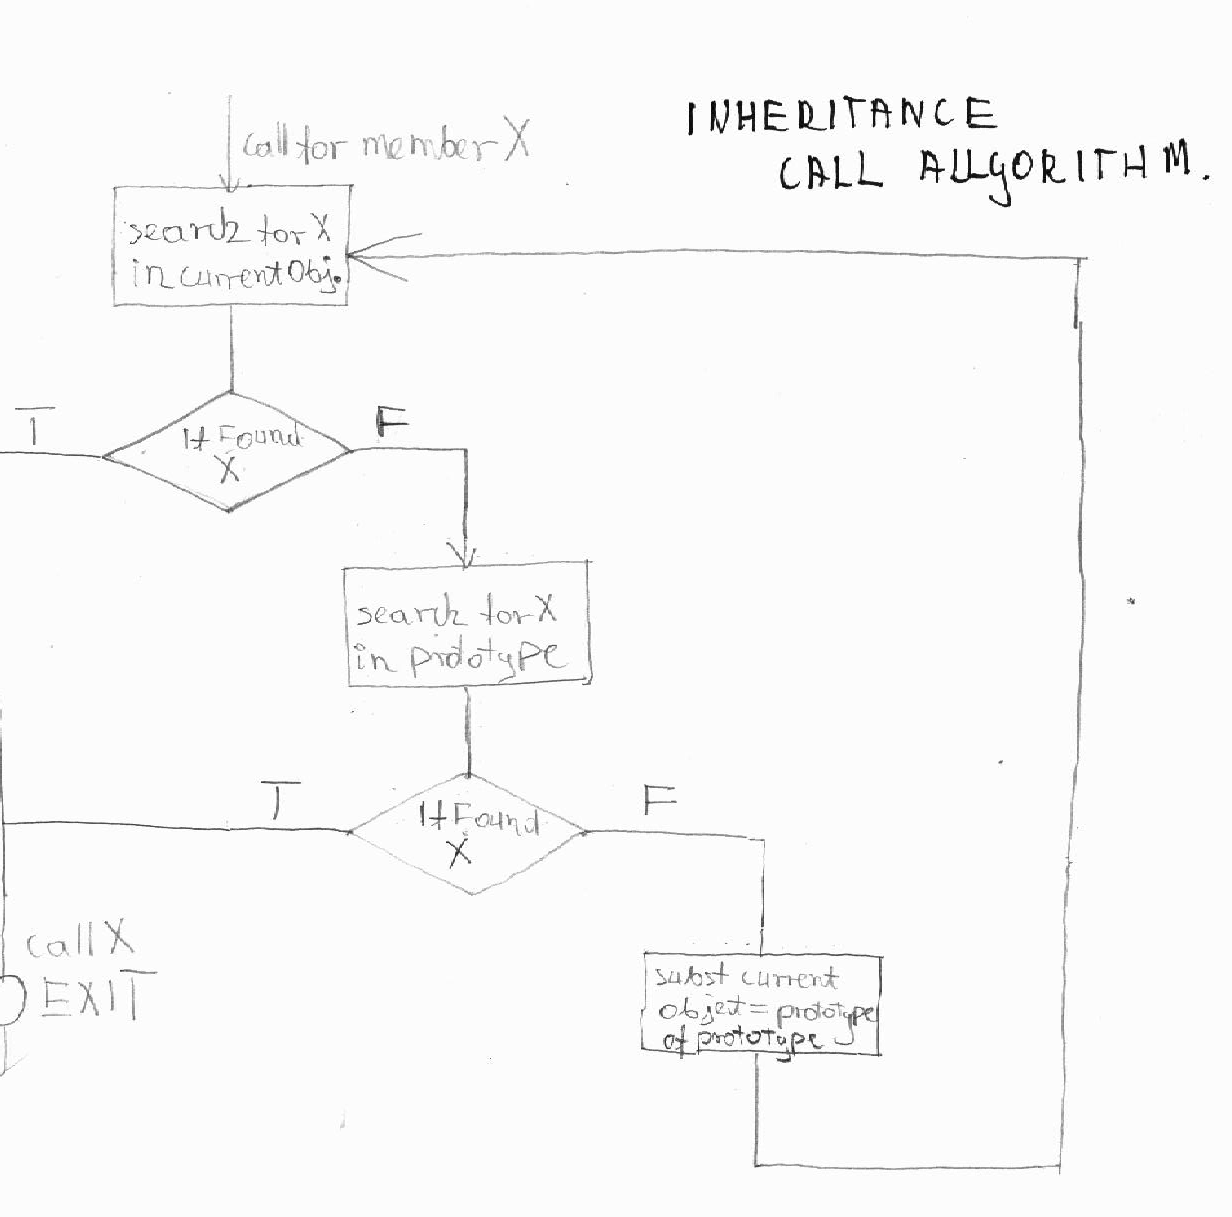 INHERITANCE
CALL ALLGORITHM.
call for member X
search for X
in current Obj.
T
F
If Found
X
search for X
in prototype
T
F
If Found
X
call X
EXIT
subst current
object = prototype
of prototype